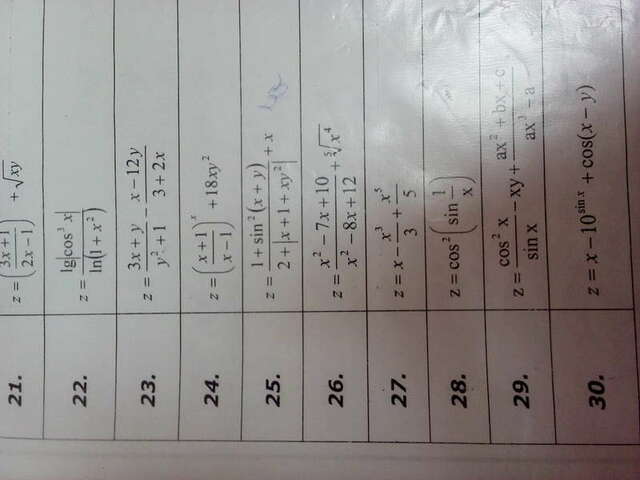 21. z = ((3x+1)/(2x−1)) + √xy
22. z = lg|cos³ x| / ln(1+x²)
23. z = (3x+y)/(y²+1) − (x−12y)/(3+2x)
24. z = ((x+1)/(x−1))^x + 18xy²
25. z = (1+sin²(x+y))/(2+|x+1+xy²|) + x
26. z = (x²−7x+10)/(x²−8x+12) + ⁵√x⁴
27. z = x − x³/3 + x⁵/5
28. z = cos²(sin 1/x)
29. z = cos² x/sin x − xy + (ax²+bx+c)/(ax³−a)
30. z = x − 10^sin x + cos(x−y)